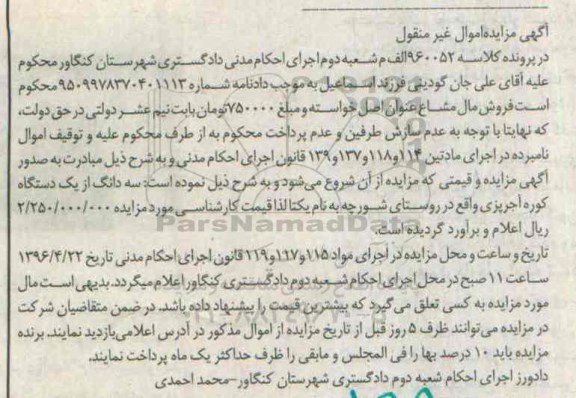 آگهی مزایده اموال غیر منقول
در پرونده کلاسه ۹۶۰۰۵۲الف م شعبه دوم اجرای احکام مدنی دادگستری شهرستان کنگاور محکوم
علیه آقای علی جان گودینی فرزند اسماعیل به موجب دادنامه شماره ۹۵۰۹۹۷۸۳۷۰۴۰۱۱۱۳ محکوم
است فروش مال مشاع عنوان اصل خواسته و مبلغ ۷۵۰۰۰۰تومان بابت نیم عشر دولتی در حق دولت،
که نهایتا با توجه به عدم سازش طرفین و عدم پرداخت محکوم به از طرف محکوم علیه و توقیف اموال
نامبرده در اجرای مادتین ۱۱۴و۱۱۸و۱۳۷و۱۳۹ قانون اجرای احکام مدنی و به شرح ذیل مبادرت به صدور
آگهی مزایده و قیمتی که مزایده از آن شروع می‌شود و به شرح ذیل نموده است: سه دانگ از یک دستگاه
کوره آجرپزی واقع در روستای شورچه به نام یکتا لذا قیمت کارشناسی مورد مزایده ۲/۲۵۰/۰۰۰/۰۰۰
ریال اعلام و برآورد گردیده است.
ParsNamadData
تاریخ و ساعت و محل مزایده در اجرای مواد ۱۱۵و۱۱۷و۱۱۹قانون اجرای احکام مدنی تاریخ ۱۳۹۶/۴/۲۲
ساعت ۱۱ صبح در محل اجرای احکام شعبه دوم دادگستری کنگاور اعلام میگردد. بدیهی است مال
مورد مزایده به کسی تعلق می گیرد که بیشترین قیمت را پیشنهاد داده باشد. در ضمن متقاضیان شرکت
در مزایده می‌توانند ظرف ۵ روز قبل از تاریخ مزایده از اموال مذکور در آدرس اعلامی بازدید نمایند. برنده
مزایده باید ۱۰ درصد بها را فی المجلس و مابقی را ظرف حداکثر یک ماه پرداخت نمایند.
دادورز اجرای احکام شعبه دوم دادگستری شهرستان کنگاور-محمد احمدی